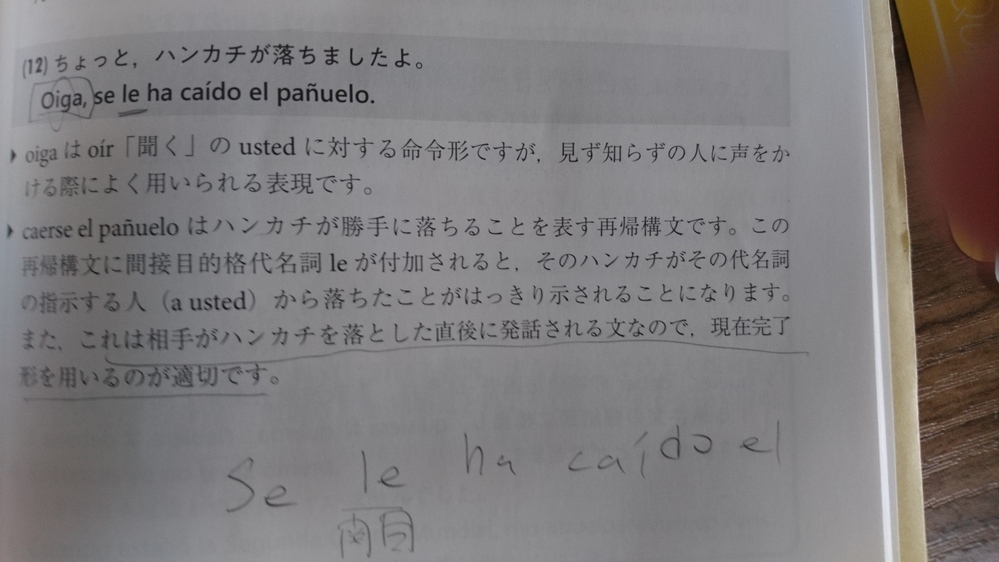 (12) ちょっと，ハンカチが落ちましたよ。
Oiga, se le ha caído el pañuelo.
oiga は oír「聞く」の usted に対する命令形ですが，見ず知らずの人に声をか
ける際によく用いられる表現です。
caerse el pañuelo はハンカチが勝手に落ちることを表す再帰構文です。この
再帰構文に間接目的格代名詞 le が付加されると，そのハンカチがその代名詞
の指示する人（a usted）から落ちたことがはっきり示されることになります。
また，これは相手がハンカチを落とした直後に発話される文なので，現在完了
形を用いるのが適切です。
Se le ha caído el